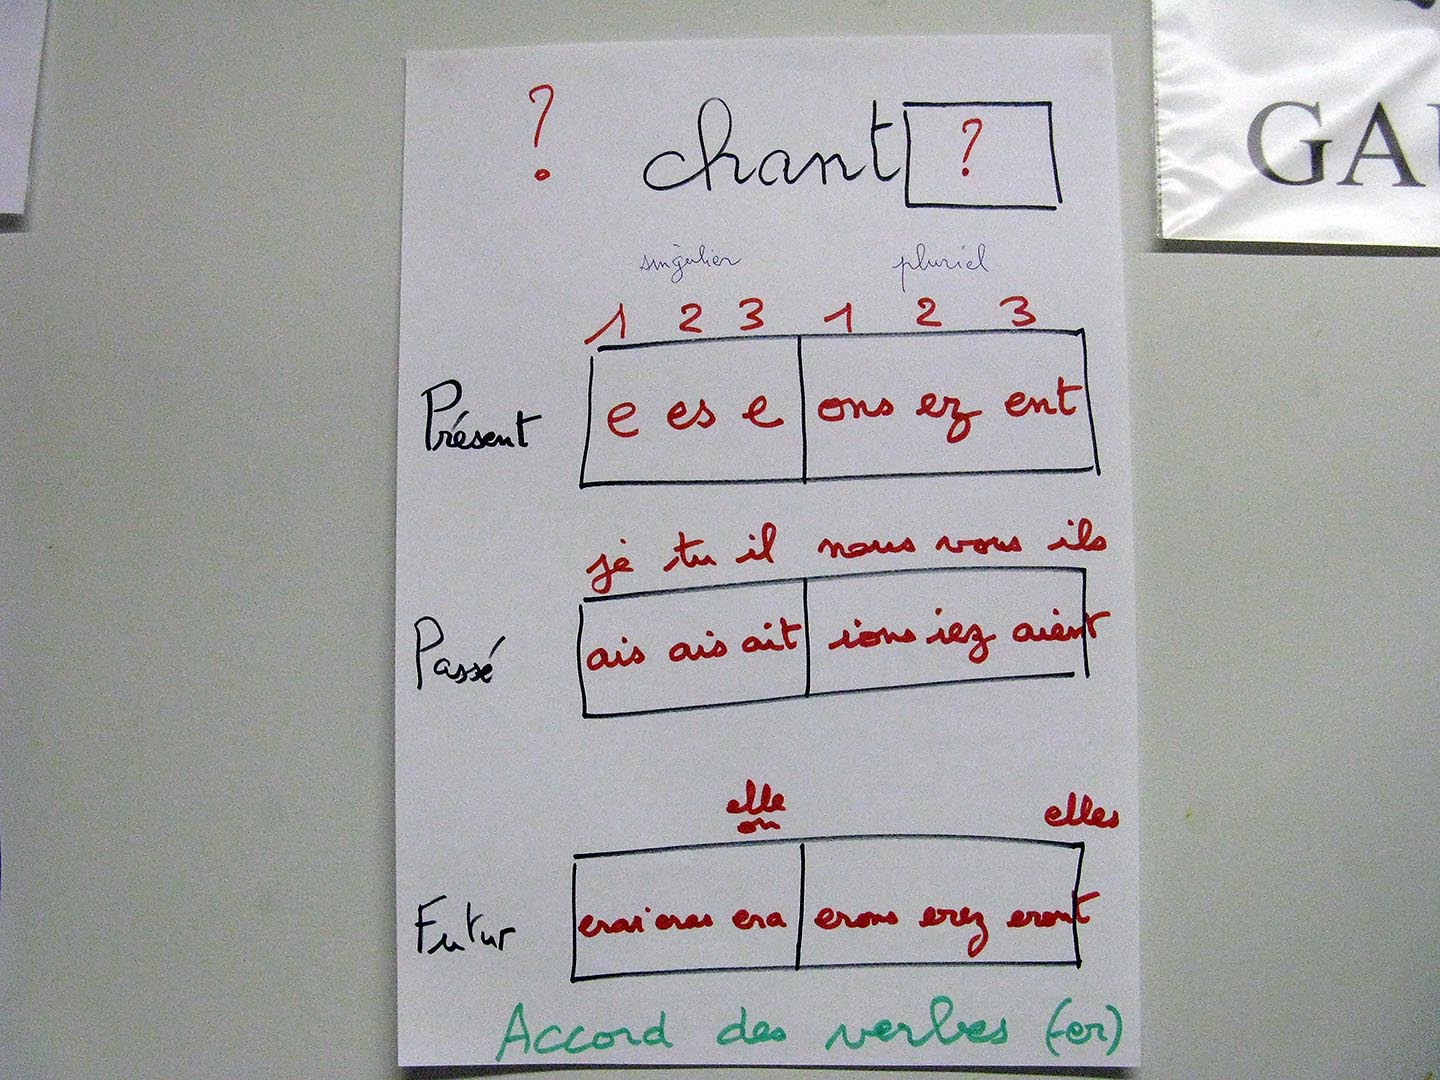 ? chant ?
GAU
singulier pluriel
1 2 3 1 2 3
Présent e es e ons ez ent
je tu il nous vous ils
Passé ais ais ait ions iez aient
elle elles
on
Futur erai eras era erons erez eront
Accord des verbes (-er)